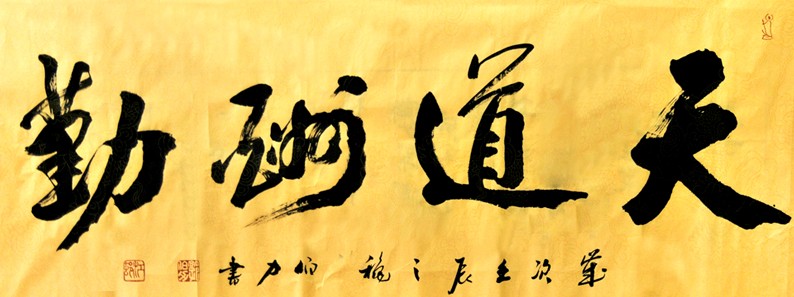 天道酬勤
岁次壬辰之秋伯力书